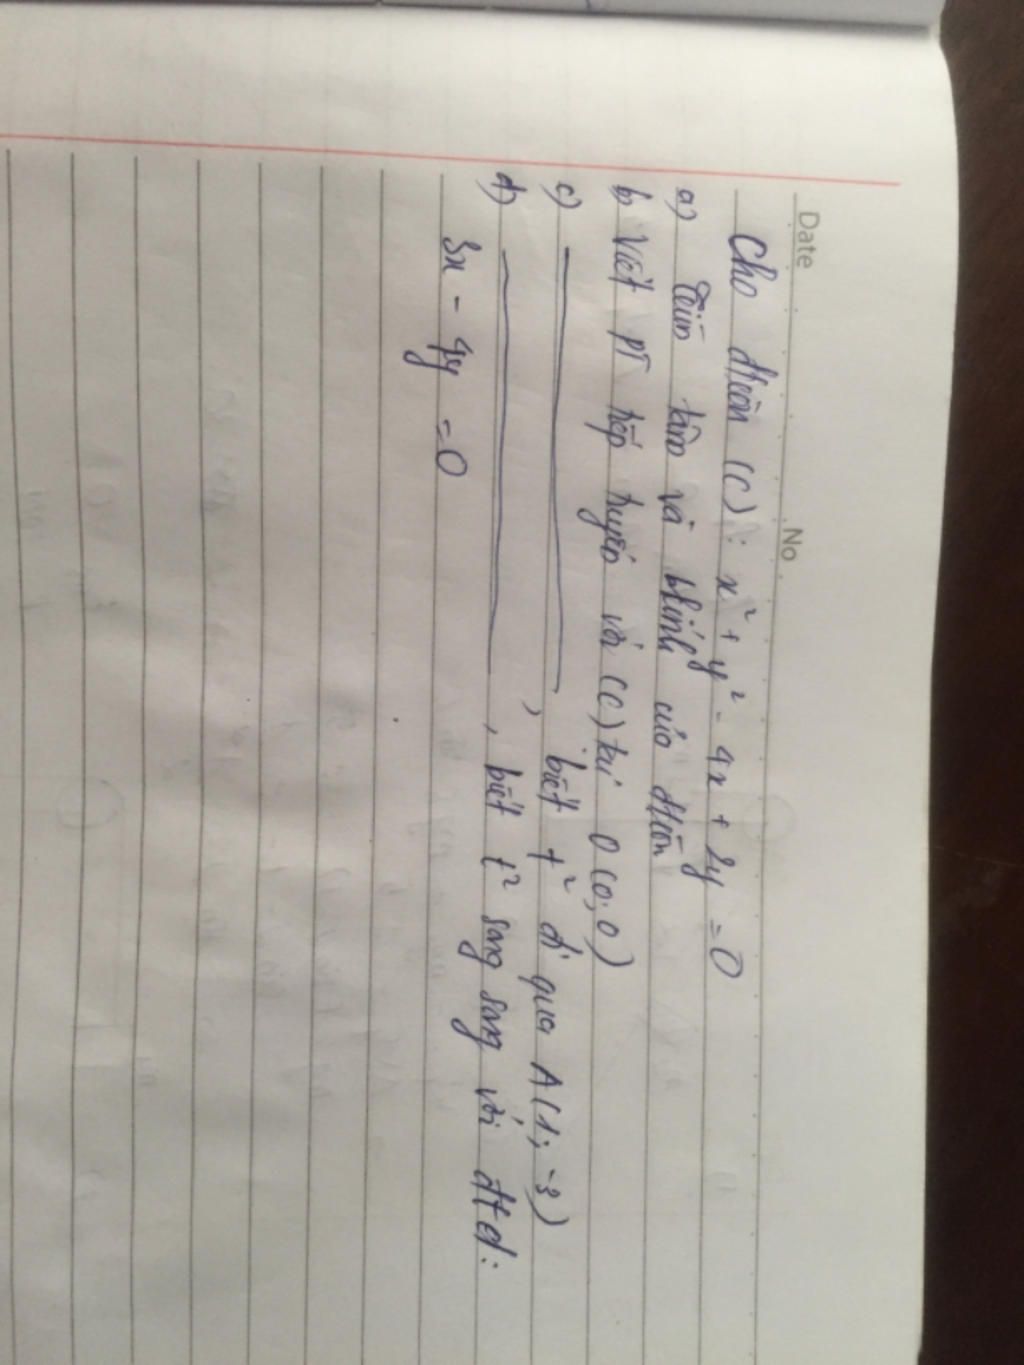 Date No.
Cho đtròn (C) : x² + y² - 4x + 2y = 0
a) Tìm tâm và bkính của đtròn
b, Viết PT tiếp tuyến với (C) tại O (0; 0)
c) , biết t² đi qua A(1; -3)
d) , biết t² song song với đt d:
3x - 4y = 0